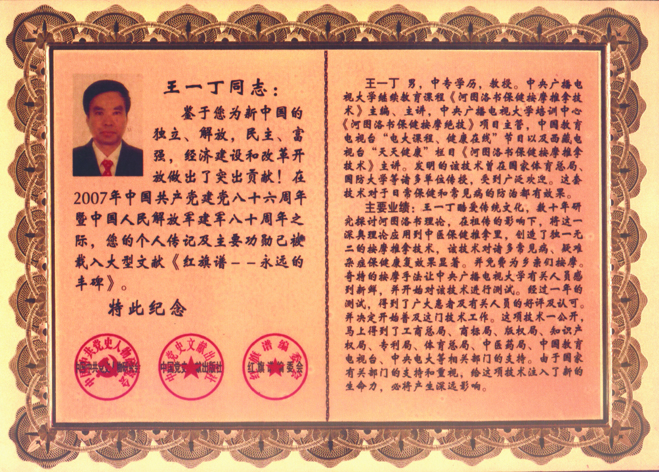 王一丁同志：
鉴于您为新中国的
独立、解放，民主、富
强，经济建设和改革开
放做出了突出贡献！在
2007年中国共产党建党八十六周年
暨中国人民解放军建军八十周年之
际，您的个人传记及主要功勋已被
载入大型文献《红旗谱——永远的
丰碑》。
特此纪念
中国党史文献出版社
红旗谱编委会
王一丁 男，中专学历，教授。中央广播电
视大学继续教育课程《河图洛书保健按摩推拿
技术》主编、主讲，中央广播电视大学培训中心
《河图洛书保健按摩绝技》项目主管，中国教育
电视台"电大课程、健康在线"节目以及西藏电
视台"天天健康"栏目《河图洛书保健按摩推拿
技术》主讲。发明的该技术曾在国家体育总局、
国防大学等诸多单位传授，受到广泛欢迎。这套
技术对于日常保健和常见病的防治都有效果。
主要业绩：王一丁酷爱传统文化，数十年研
究探讨河图洛书理论，在祖传的影响下，将这一
深奥理论应用到中医保健推拿里，创造了独一无
二的按摩推拿技术，该技术对诸多常见病、疑难
杂症保健康复效果显著。并免费为乡亲们按摩。
奇特的按摩手法让中央广播电视大学有关人员感
到新鲜，并开始对该技术进行测试。经过一年的
测试，得到了广大患者及有关人员的好评及认可。
并决定开始普及这门技术工作。这项技术一公开，
马上得到了工商总局、商标局、版权局、知识产
权局、专利局、体育总局、中医药局、中国教育
电视台、中央电大等相关部门的支持。由于国家
有关部门的支持和重视，给这项技术注入了新的
生命力，必将产生深远影响。